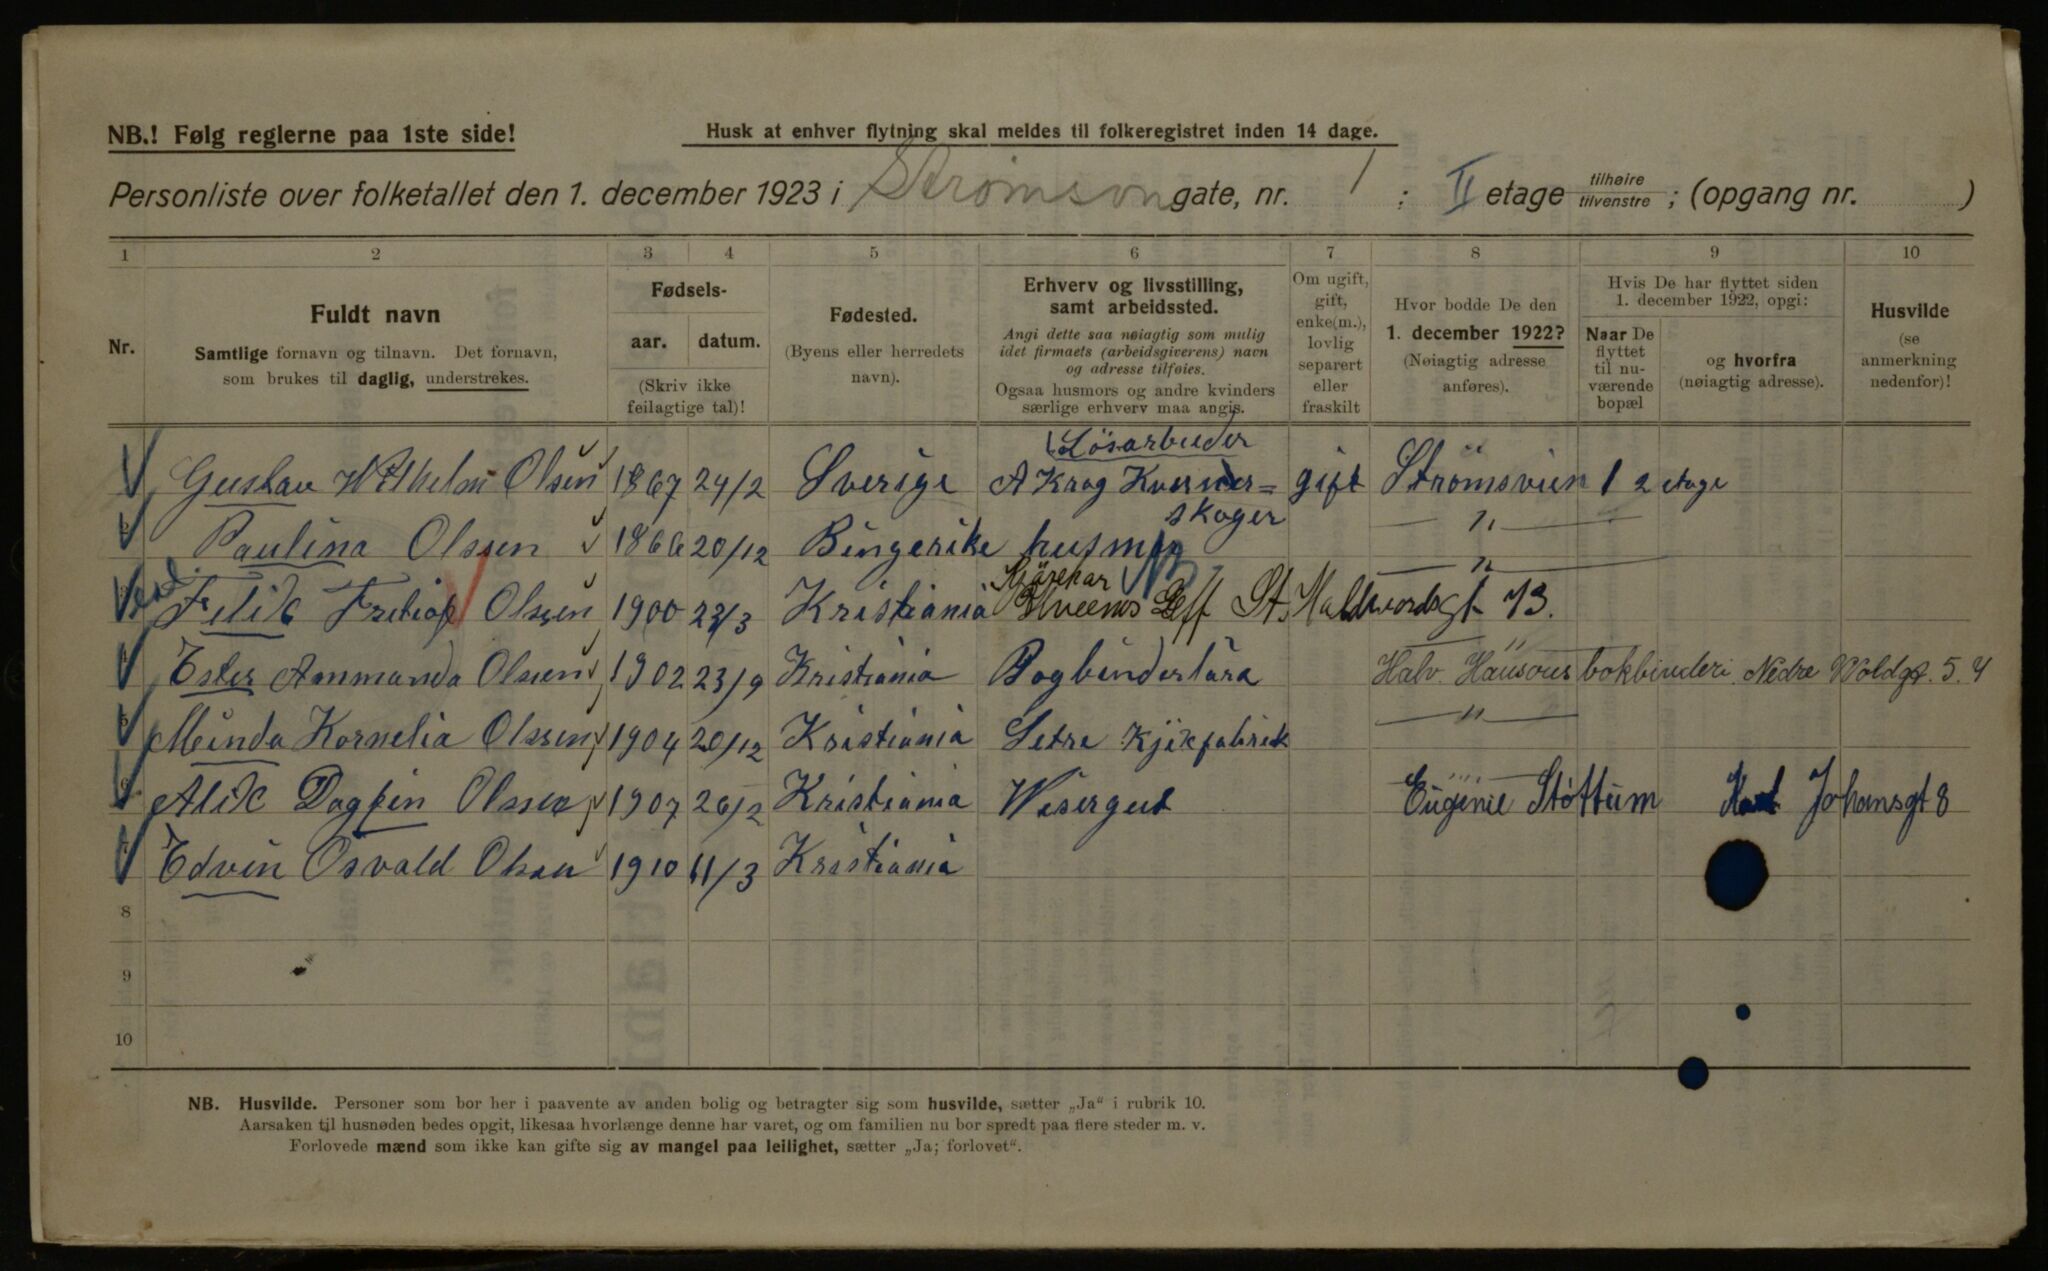 NB.! Følg reglerne paa 1ste side!
Husk at enhver flytning skal meldes til folkeregistret inden 14 dage.
Personliste over folketallet den 1. december 1923 i Strømson gate, nr. 1 ; II etage tilhøire tilvenstre ; (opgang nr. )
1 2 3 4 5 6 7 8 9 10
Nr.
Fuldt navn
Samtlige fornavn og tilnavn. Det fornavn,
som brukes til daglig, understrekes.
Fødsels-
aar. datum.
(Skriv ikke
feilagtige tal)!
Fødested.
(Byens eller herredets
navn).
Erhverv og livsstilling,
samt arbeidssted.
Angi dette saa nøiagtig som mulig
idet firmaets (arbeidsgiverens) navn
og adresse tilføies.
Ogsaa husmors og andre kvinders
særlige erhverv maa angis.
Om ugift,
gift,
enke(m.),
lovlig
separert
eller
fraskilt
Hvor bodde De den
1. december 1922?
(Nøiagtig adresse
anføres).
Hvis De har flyttet siden
1. december 1922, opgi:
Naar De
flyttet
til nu-
værende
bopæl
og hvorfra
(nøiagtig adresse).
Husvilde
(se
anmerkning
nedenfor)!
Lösarbeider
Gustav Wilhelm Olsen 1867 24/2 Sverige A Krag Kverner= gift Strömsvien 1 2 etage
skoger
Paulina Olssen 1866 20/12 Bingerike husmor "
Kjørekar "
Felix Fritiof Olssen 1900 23/3 Kristiania Eff St. Haldvordsgt 73.
4 Ester Ammanda Olssen 1902 23/9 Kristiania Bogbinderlära " Halv. Hansons bokbinderi Nedre Voldgt. 5. 4
5 Minda Kornelia Olssen 1904 20/12 Kristiania Setre Kjixfabrik "
6 Alix Dagfin Olssen 1907 26/2 Kristiania Visergut Eugenie Støttum Karl Johansgt 8
7 Edvin Osvald Olsen 1910 11/3 Kristiania
8
9
10
NB. Husvilde. Personer som bor her i paavente av anden bolig og betragter sig som husvilde, sætter „Ja“ i rubrik 10.
Aarsaken til husnøden bedes opgit, likesaa hvorlænge denne har varet, og om familien nu bor spredt paa flere steder m. v.
Forlovede mænd som ikke kan gifte sig av mangel paa leilighet, sætter „Ja; forlovet“.